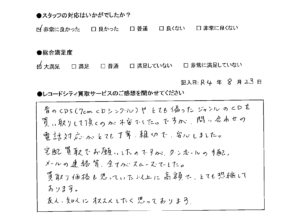 ●スタッフの対応はいかがでしたか？
☑非常に良かった □良かった □普通 □良くない □非常に良くない
●総合満足度
☑大満足 □満足 □普通 □満足していない □非常に満足していない
記入日 R4 年 8 月 29 日
●レコードシティ買取サービスのご感想を聞かせてください
昔のCDS(7cm CDシングル)や とても偏った ジャンルのCDを
買い取りして頂くのが 不安でしたのですが、問い合わせの
電話対応が とても丁寧、親切で、安心しました。
宅配買取でお願いしたのですが、ダンボールの手配、
メールの連絡等、全てがスムーズでした。
買取り価格も思っていた以上に高額で、とても感謝して
おります。
友人、知人にオススメしたく思っております